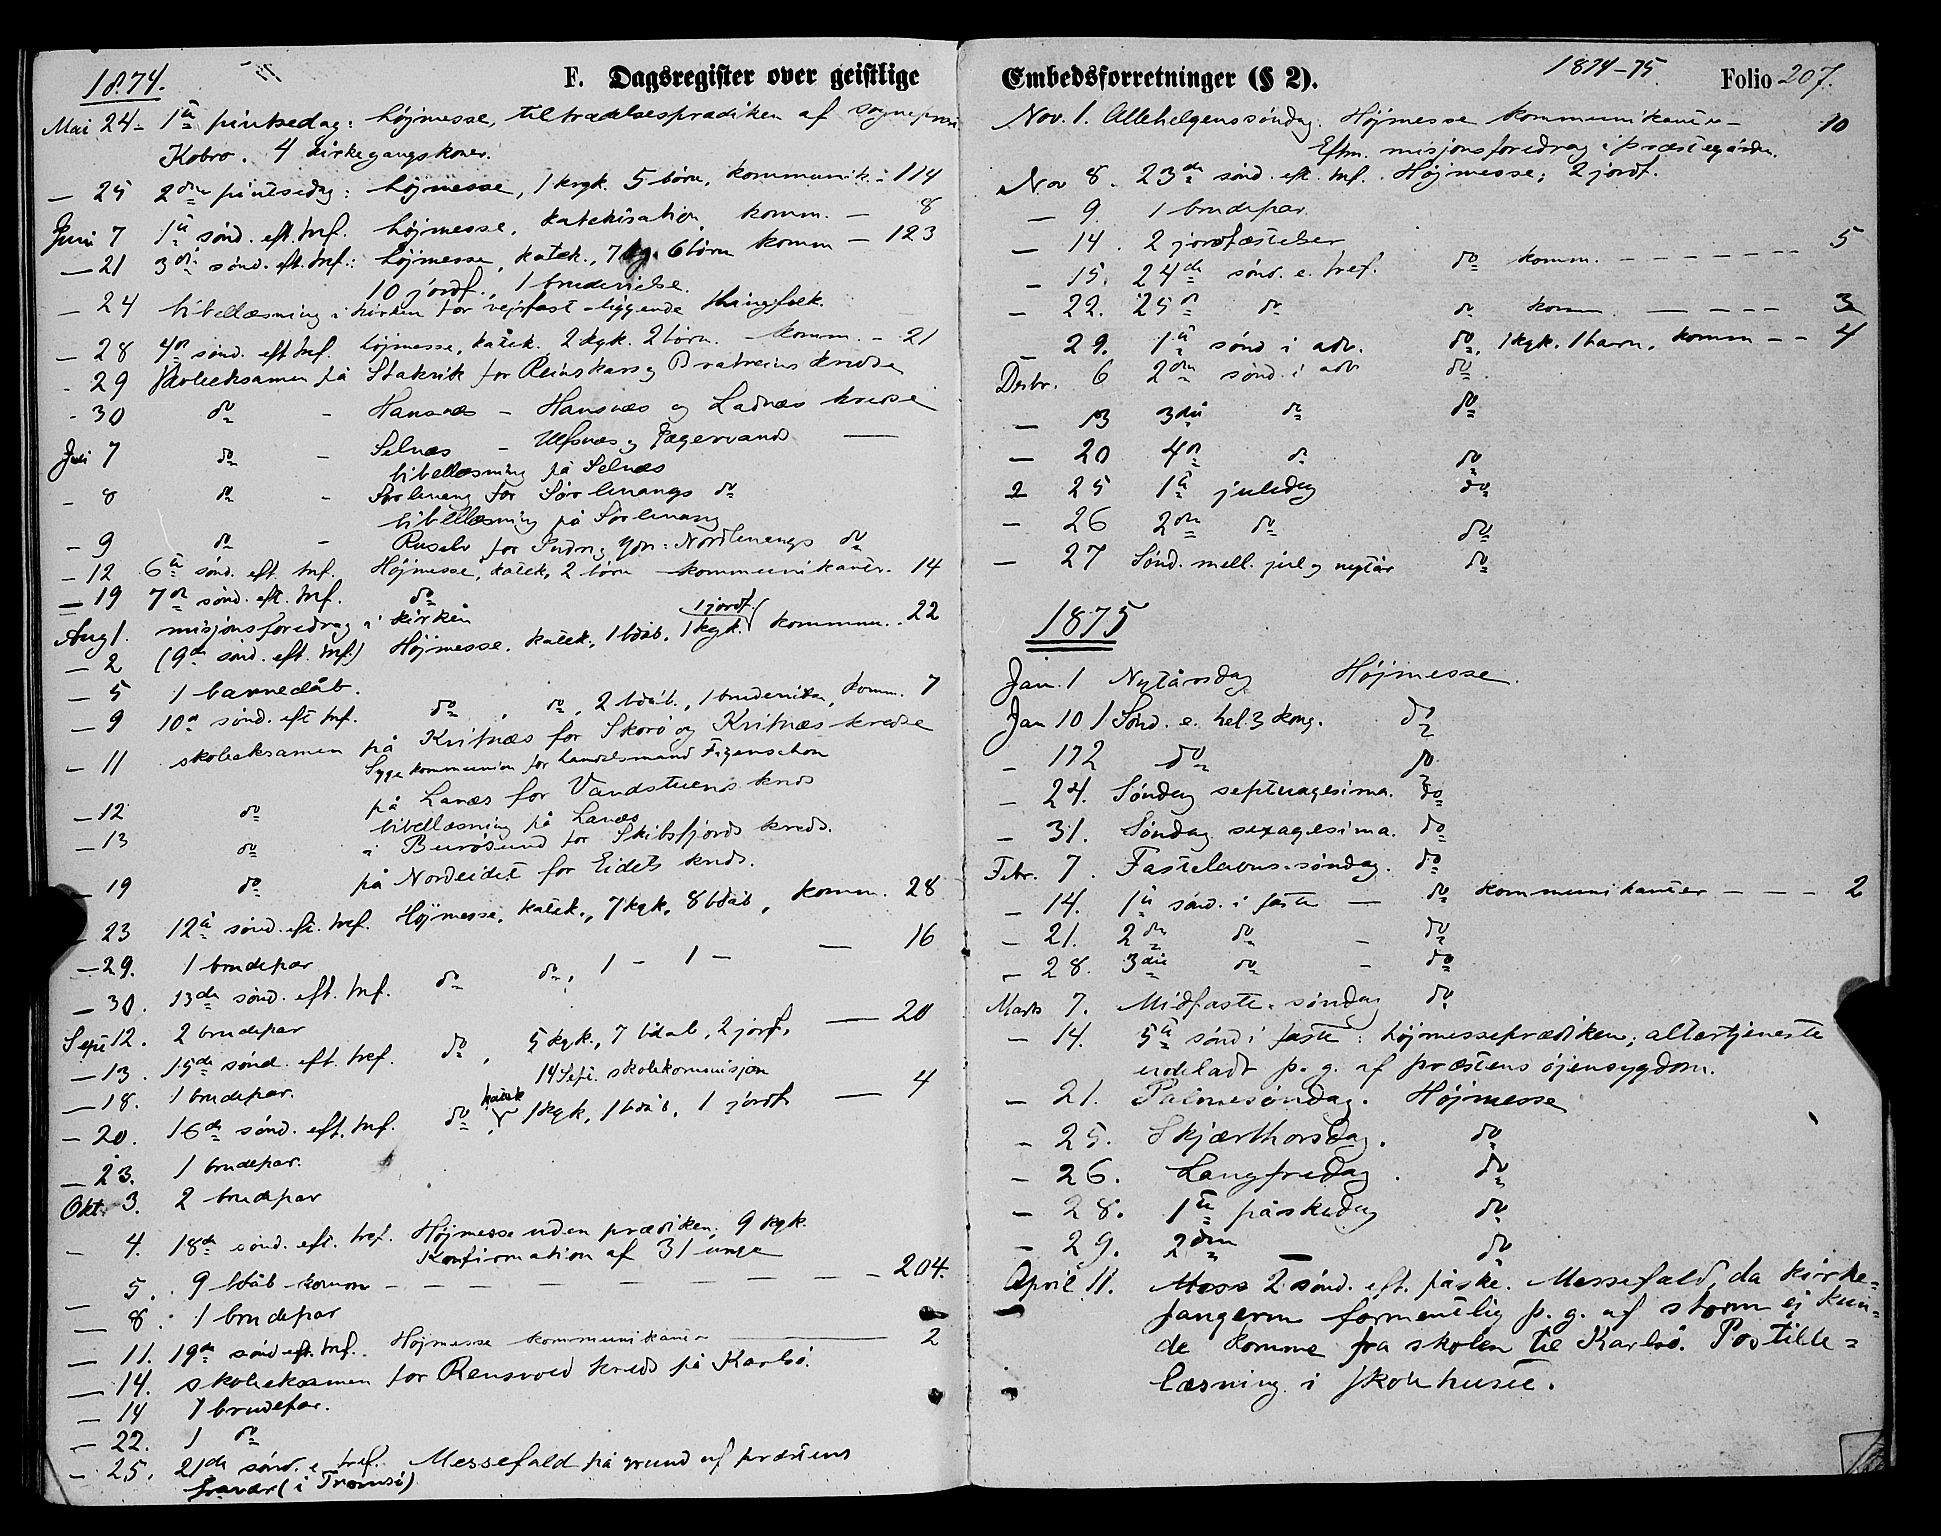 1874.
F. Dagsregister over geistlige
Mai 24 - 1ste pintsedag: højmesse, tiltrædelsesprædiken af sognepræst
Kobro. 4 kirkegangskoner.
— 25 2den pintsedag: højmesse, 1 krgk. 5 børn, kommunik. - 114
Juni 7 1ste sønd. eft. tref. højmesse, katekisation, komm. — 8
— 21 3die sønd. eft. tref.: højmesse, katek., 7 kg. 6 børn komm — 123
10 jordf., 1 brudevielse.
— 24 bibellæsning i kirken for vejrfast-liggende thingfolk.
— 28 4de sønd. eft tref. højmesse, katek. 2 kgk. 2 børn. komm. - 21
- 29 Skoleeksamen på Stakvik for Reinskar og Bratreins kredse
- 30 do - Hansnæs - Hansnæs og Ladnæs kredse
Juli 7 do - Selnæs - Ulfsnæs og Jægervands —
bibellæsning på Selnæs
- 8 do - Sørlenang for Sørlenangs do
bibellæsning på Sørlenang
- 9 do - Ruselv for Indre og Ydre Nordlenangs do
- 12 6te sønd. eft. tref. Højmesse, katek, 2 børn kommunikanter. 14
— 19 7de sønd. eft. tref. do
Aug 1. misjonsforedrag i kirken
1 jordf.
— 2 (9de sønd. eft. tref.) Højmesse. katek., 1 bdåb, 1 kgk. kommun. 22
— 5 1 barnedåb.
— 9 10de sønd. eft tref. do , do, 2 bdåb., 1 brudevielse, komm. 7
— 11 skoleeksamen på Kvitnæs for Skorø og Kvitnæs kredse
Sygekommunion for handelsmand Figenschou
— 12 do på Lanæs for Vandstuens kreds
bibellæsning på Lanæs
— 13 do i Burøsund for Skibsfjords kreds.
— 19 do på Nordeidet for Eidets kreds.
— 23 12te sønd. eft. tref. Højmesse, katek., 7 kgk, 8 bdåb, komm. 28
— 29. 1 brudepar
— 30. 13de sønd. eft. tref. do do, 1 - 1 - — 16
Sept 12. 2 brudepar
— 13. 15de sønd. eft. tref. do , 5 kgk., 7 bdåb, 2 jordf, — 20
14 Sept. skolekommisjon
— 18. 1 brudepar.
katek
— 20. 16de sønd. eft. tref. do , 1 kgk, 1 bdåb, 1 jordf. — 4
— 23. 1 brudepar.
Okt. 3. 2 brudepar
— 4. 18de sønd. eft. tref. Højmesse uden prædiken; 9 kgk.
Konfirmation af 31 unge
— 5. 9 bdåb komm - — — — — — — 204.
— 8. 1 brudepar
— 11. 19de sønd eft. tref. Højmesse kommunikanter — 2
— 14. skoleeksamen for Rensvold kreds på Karlsø.
— 14 1 brudepar.
— 22. 1 do
— 25. 21de sønd. e. tref. Messefald på grund af præstens
fravær (i Tromsø)
Embedsforretninger (§ 2).
1874-75
Folio 207.
Nov. 1. Allehelgenssøndag. Højmesse kommunikanter — 10
Eftm. misjonsforedrag i præstegården.
Nov 8. 23de sønd. eft. tref. Højmesse; 2 jordf.
— 9. 1 brudepar
— 14. 2 jordfæstelser
15. 24de sønd. e. tref. do komm. - - - - - - - 5
— 22. 25de do do komm. — - - - 3
— 29. 1ste sønd i adv. do, 1 kgk. 1 barn. komm - - 4
Desbr. 6 2den sønd. i adv do
— 13 3die do do
— 20 4de do do
- 25 1ste juledag do
— 26 2den do do
— 27 Sønd. mell. jul og nytår do
1875
Jan. 1 Nytårsdag Højmesse.
Jan 10 1 Sønd. e. hel. 3 kong. do
— 17 2 do do
— 24. Søndag septuagesima. do
— 31. Søndag sexagesima. do
Febr. 7. Fastelavns-søndag. do
— 14. 1ste sønd. i faste — do kommunikanter - - - 2
— 21. 2den do - do
— 28. 3die do - do
Marts 7. Midfaste-søndag do
— 14. 5te sønd i faste: højmesseprædiken; altertjeneste
udeladt p. g. af præstens øjensygdom.
— 21. Palmesøndag. Højmesse
— 25. Skjærthorsdag. do
— 26. Langfredag. do
— 28. 1ste påskedag do
— 29. 2den — do
April 11. 2 sønd. eft. påske. Messefald, da kirke-
sangeren formentlig p. g. af storm ej kun-
de komme fra skolen til Karlsø. Postille-
læsning i skolehuset.